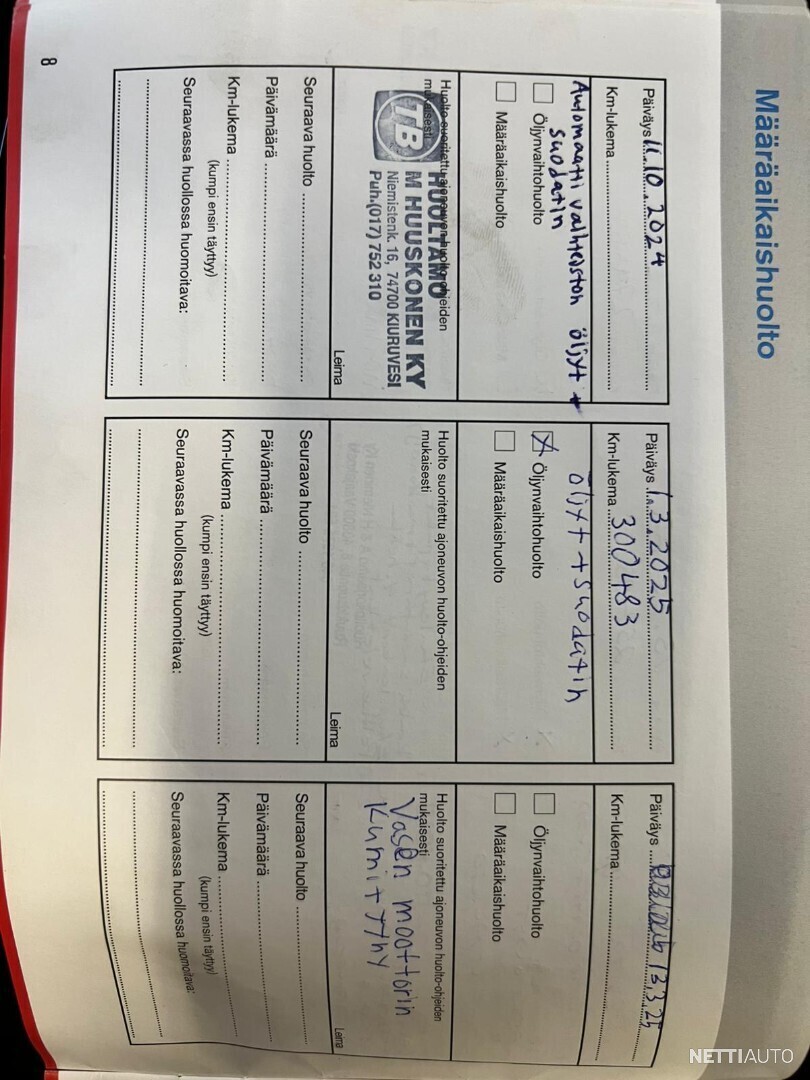 Määräaikaishuolto
Päiväys 11.10.2024
Km-lukema
Automaatti vaihteiston öljyt +
suodatin
Öljynvaihtohuolto
Määräaikaishuolto
Huolto suoritettu ajoneuvon huolto-ohjeiden
mukaisesti
TB HUOLTAMO
M HUUSKONEN KY
Niemistenk. 16, 74700 KIURUVESI
Puh.(017) 752 310
Leima
Seuraava huolto
Päivämäärä
Km-lukema
(kumpi ensin täyttyy)
Seuraavassa huollossa huomoitava:
Päiväys 1.3.2025
Km-lukema 300483
Öljyt + suodatin
X Öljynvaihtohuolto
Määräaikaishuolto
Huolto suoritettu ajoneuvon huolto-ohjeiden
mukaisesti
Leima
Seuraava huolto
Päivämäärä
Km-lukema
(kumpi ensin täyttyy)
Seuraavassa huollossa huomoitava:
Päiväys 13.3.25
Km-lukema
Öljynvaihtohuolto
Määräaikaishuolto
Huolto suoritettu ajoneuvon huolto-ohjeiden
mukaisesti
Vasen moottorin
Kumi + tyny
Leima
Seuraava huolto
Päivämäärä
Km-lukema
(kumpi ensin täyttyy)
Seuraavassa huollossa huomoitava:
8
NETTIAUTO